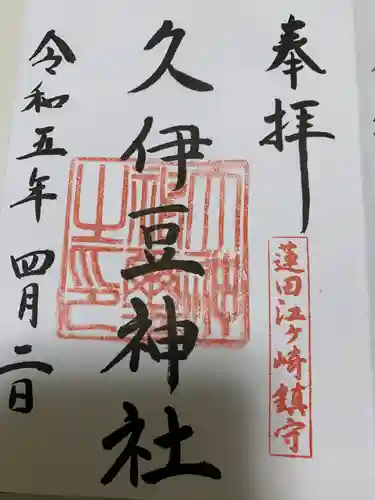 奉拝
蓮田江ヶ崎鎮守
久伊豆神社
令和五年四月二日